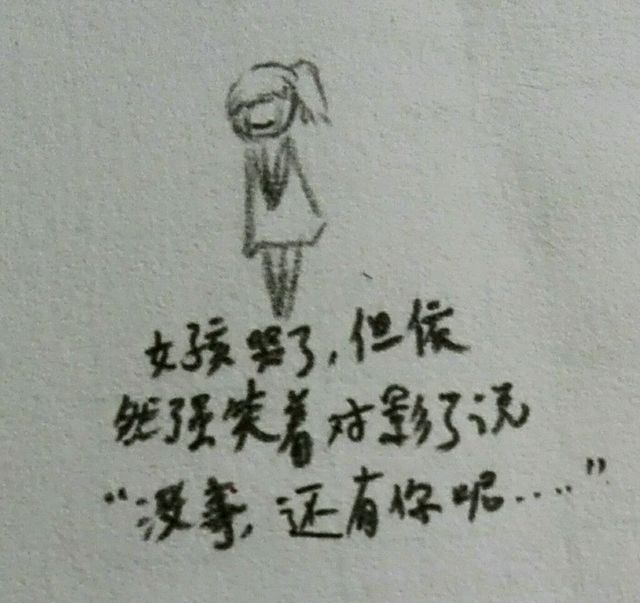 女孩哭了，但依
然强笑着对影子说
“没事，还有你呢……”